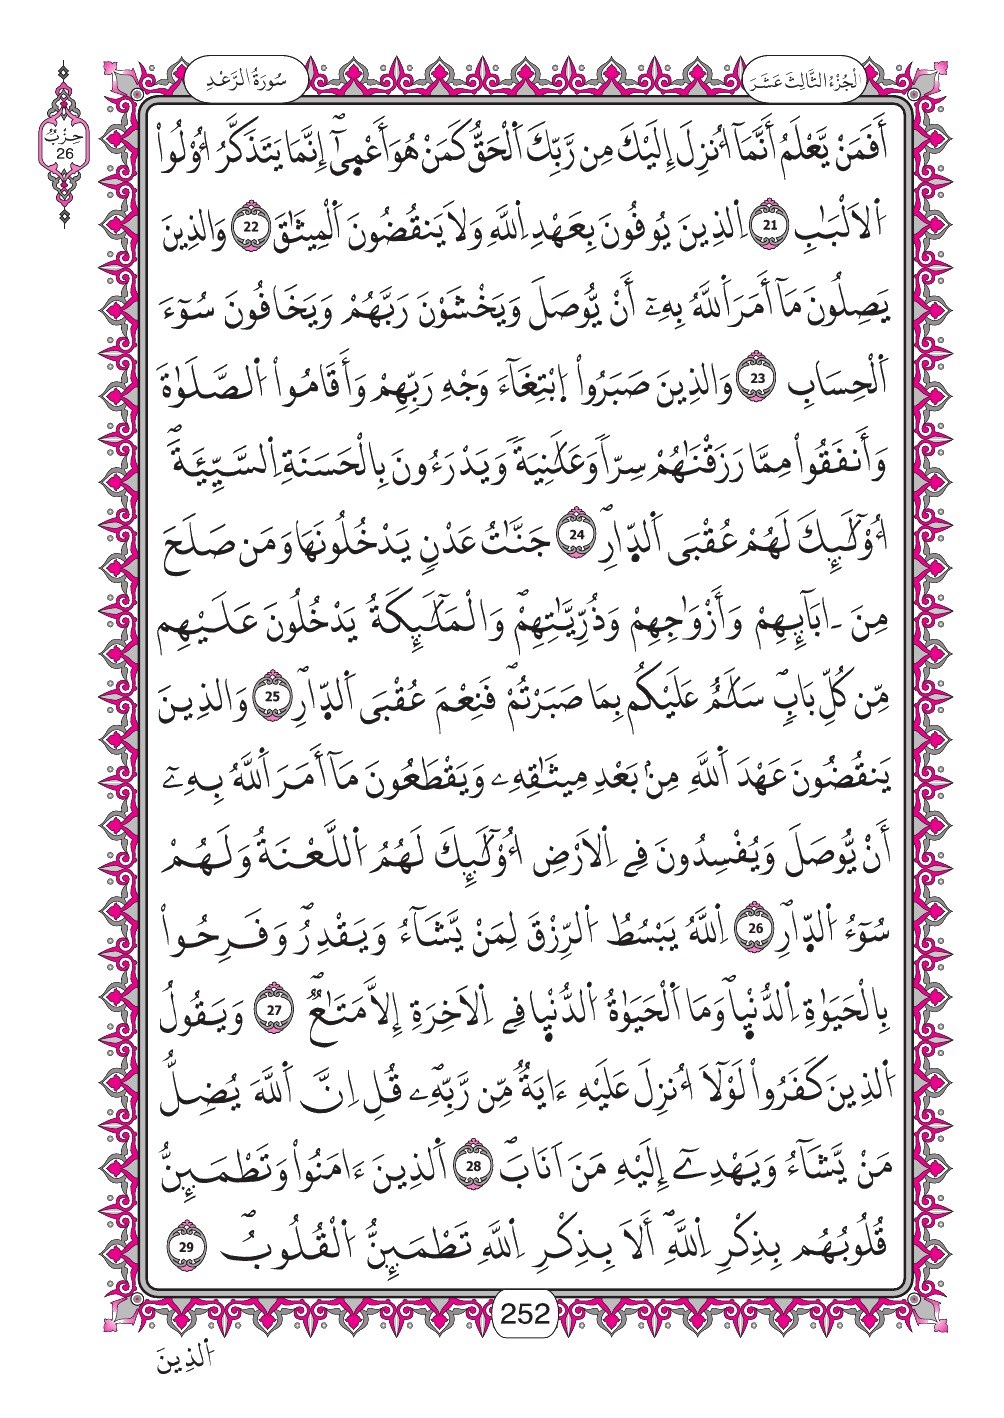 سُورَةُ الرَّعْدِ
الْجُزْءُ الثَّالِثَ عَشَرَ
حِزْبٌ
26
أَفَمَنْ يَّعْلَمُ أَنَّمَآ أُنزِلَ إِلَيْكَ مِن رَّبِّكَ اَ۬لْحَقُّ كَمَنْ هُوَ أَعْم۪ىٰٓۖ إِنَّمَا يَتَذَكَّرُ أُوْلُواْ
اُ۬لَالْبَٰبِ 21 اِ۬لذِينَ يُوفُونَ بِعَهْدِ اِ۬للَّهِ وَلَا يَنقُضُونَ اَ۬لْمِيثَٰقَ 22 وَالذِينَ
يَصِلُونَ مَآ أَمَرَ اَ۬للَّهُ بِهِۦٓ أَنْ يُّوصَلَ وَيَخْشَوْنَ رَبَّهُمْ وَيَخَافُونَ سُوٓءَ
اَ۬لْحِسَابِ 23 وَالذِينَ صَبَرُواْ اُ۪بْتِغَآءَ وَجْهِ رَبِّهِمْ وَأَقَامُواْ اُ۬لصَّلَوٰةَ
وَأَنفَقُواْ مِمَّا رَزَقْنَٰهُمْ سِرّاٗ وَعَلَٰنِيَةٗ وَيَدْرَءُونَ بِالْحَسَنَةِ اِ۬لسَّيِّئَةَۖ
أُوْلَٰٓئِكَ لَهُمْ عُقْبَى اَ۬لدّ۪ارِۖ 24 جَنَّٰتُ عَدْنٖ يَدْخُلُونَهَا وَمَن صَلَحَ
مِنَ ـ اٰبَآئِهِمْ وَأَزْوَٰجِهِمْ وَذُرِّيَّٰتِهِمْۖ وَالْمَلَٰٓئِكَةُ يَدْخُلُونَ عَلَيْهِم
مِّن كُلِّ بَابٖۖ سَلَٰمٌ عَلَيْكُم بِمَا صَبَرْتُمْۖ فَنِعْمَ عُقْبَى اَ۬لدّ۪ارِۖ 25 وَالذِينَ
يَنقُضُونَ عَهْدَ اَ۬للَّهِ مِنۢ بَعْدِ مِيثَٰقِهِۦ وَيَقْطَعُونَ مَآ أَمَرَ اَ۬للَّهُ بِهِۦٓ
أَنْ يُّوصَلَ وَيُفْسِدُونَ فِے اِ۬لَارْضِ أُوْلَٰٓئِكَ لَهُمُ اُ۬للَّعْنَةُ وَلَهُمْ
سُوٓءُ اُ۬لدّ۪ارِۖ 26 اِ۬للَّهُ يَبْسُطُ اُ۬لرِّزْقَ لِمَنْ يَّشَآءُ وَيَقْدِرُۖ وَفَرِحُواْ
بِالْحَيَوٰةِ اِ۬لدُّنْي۪اۖ وَمَا اَ۬لْحَيَوٰةُ اُ۬لدُّنْي۪ا فِے اِ۬لَاخِرَةِ إِلَّا مَتَٰعٌۖ 27 وَيَقُولُ
اُ۬لذِينَ كَفَرُواْ لَوْلَآ أُنزِلَ عَلَيْهِ ءَايَةٌ مِّن رَّبِّهِۦۖ قُلِ اِنَّ اَ۬للَّهَ يُضِلُّ
مَنْ يَّشَآءُ وَيَهْدِےٓ إِلَيْهِ مَنَ اَنَابَۖ 28 اَ۬لذِينَ ءَامَنُواْ وَتَطْمَئِنُّ
قُلُوبُهُم بِذِكْرِ اِ۬للَّهِۖ أَلَا بِذِكْرِ اِ۬للَّهِ تَطْمَئِنُّ اُ۬لْقُلُوبُۖ 29
252
اُ۬لذِينَ